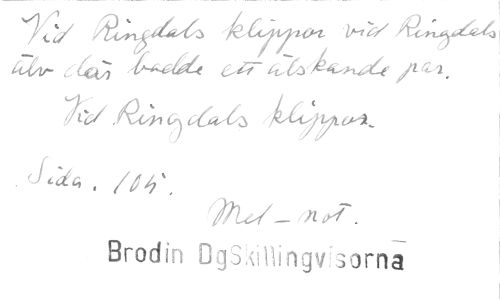 Vid Ringdals klippor vid Ringdals
älv där bodde ett älskande par.
Vid Ringdals klippor.
Sida. 105.
Mel-not.
Brodin DgSkillingvisorna